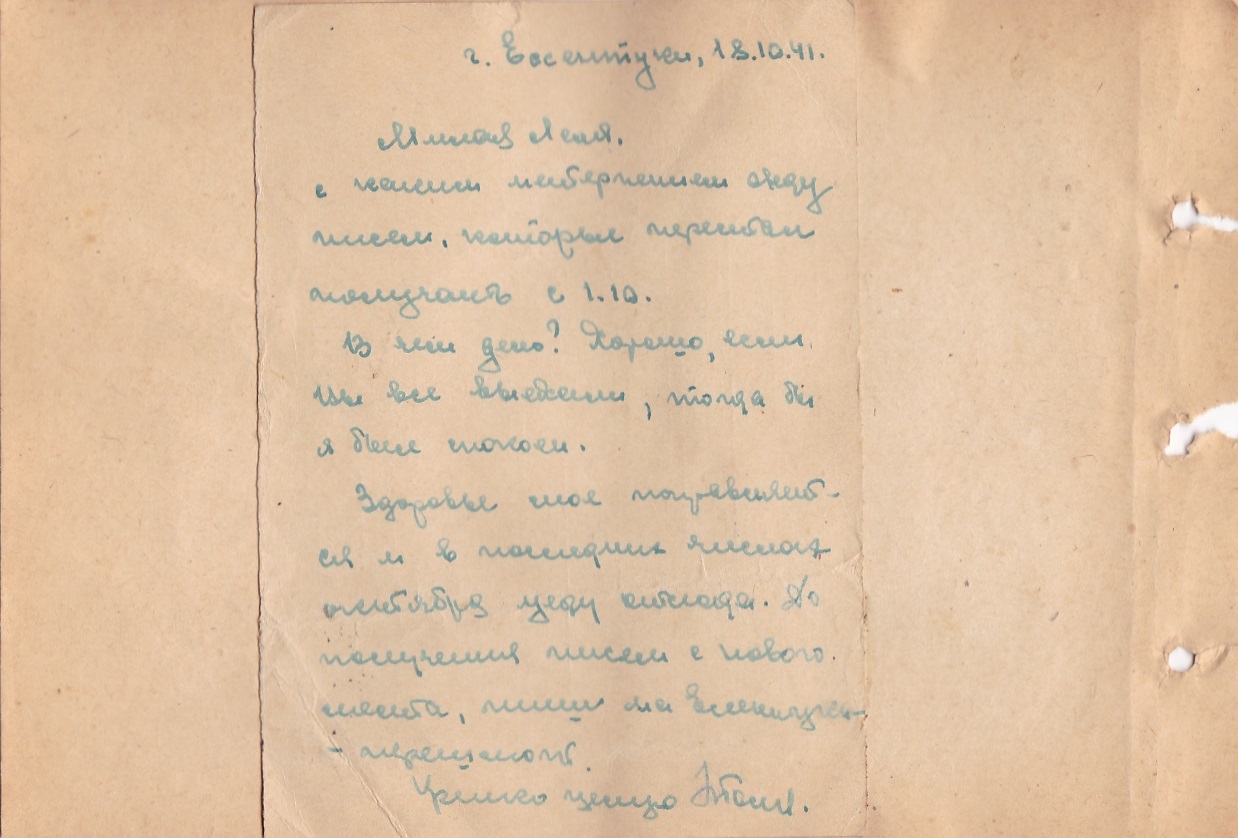 г. Ессентуки, 18.10.41.
Милая Леля.
с каким нетерпением жду
писем, которые перестал
получать с 1.10.
В чем дело? Хорошо, если
Вы все выехали, тогда бы
я был спокоен.
Здоровье мое поправляет-
ся и в последних числах
октября уеду отсюда. До
получения писем с нового
места, пиши на Ессентуки
- перешлют.
Крепко целую